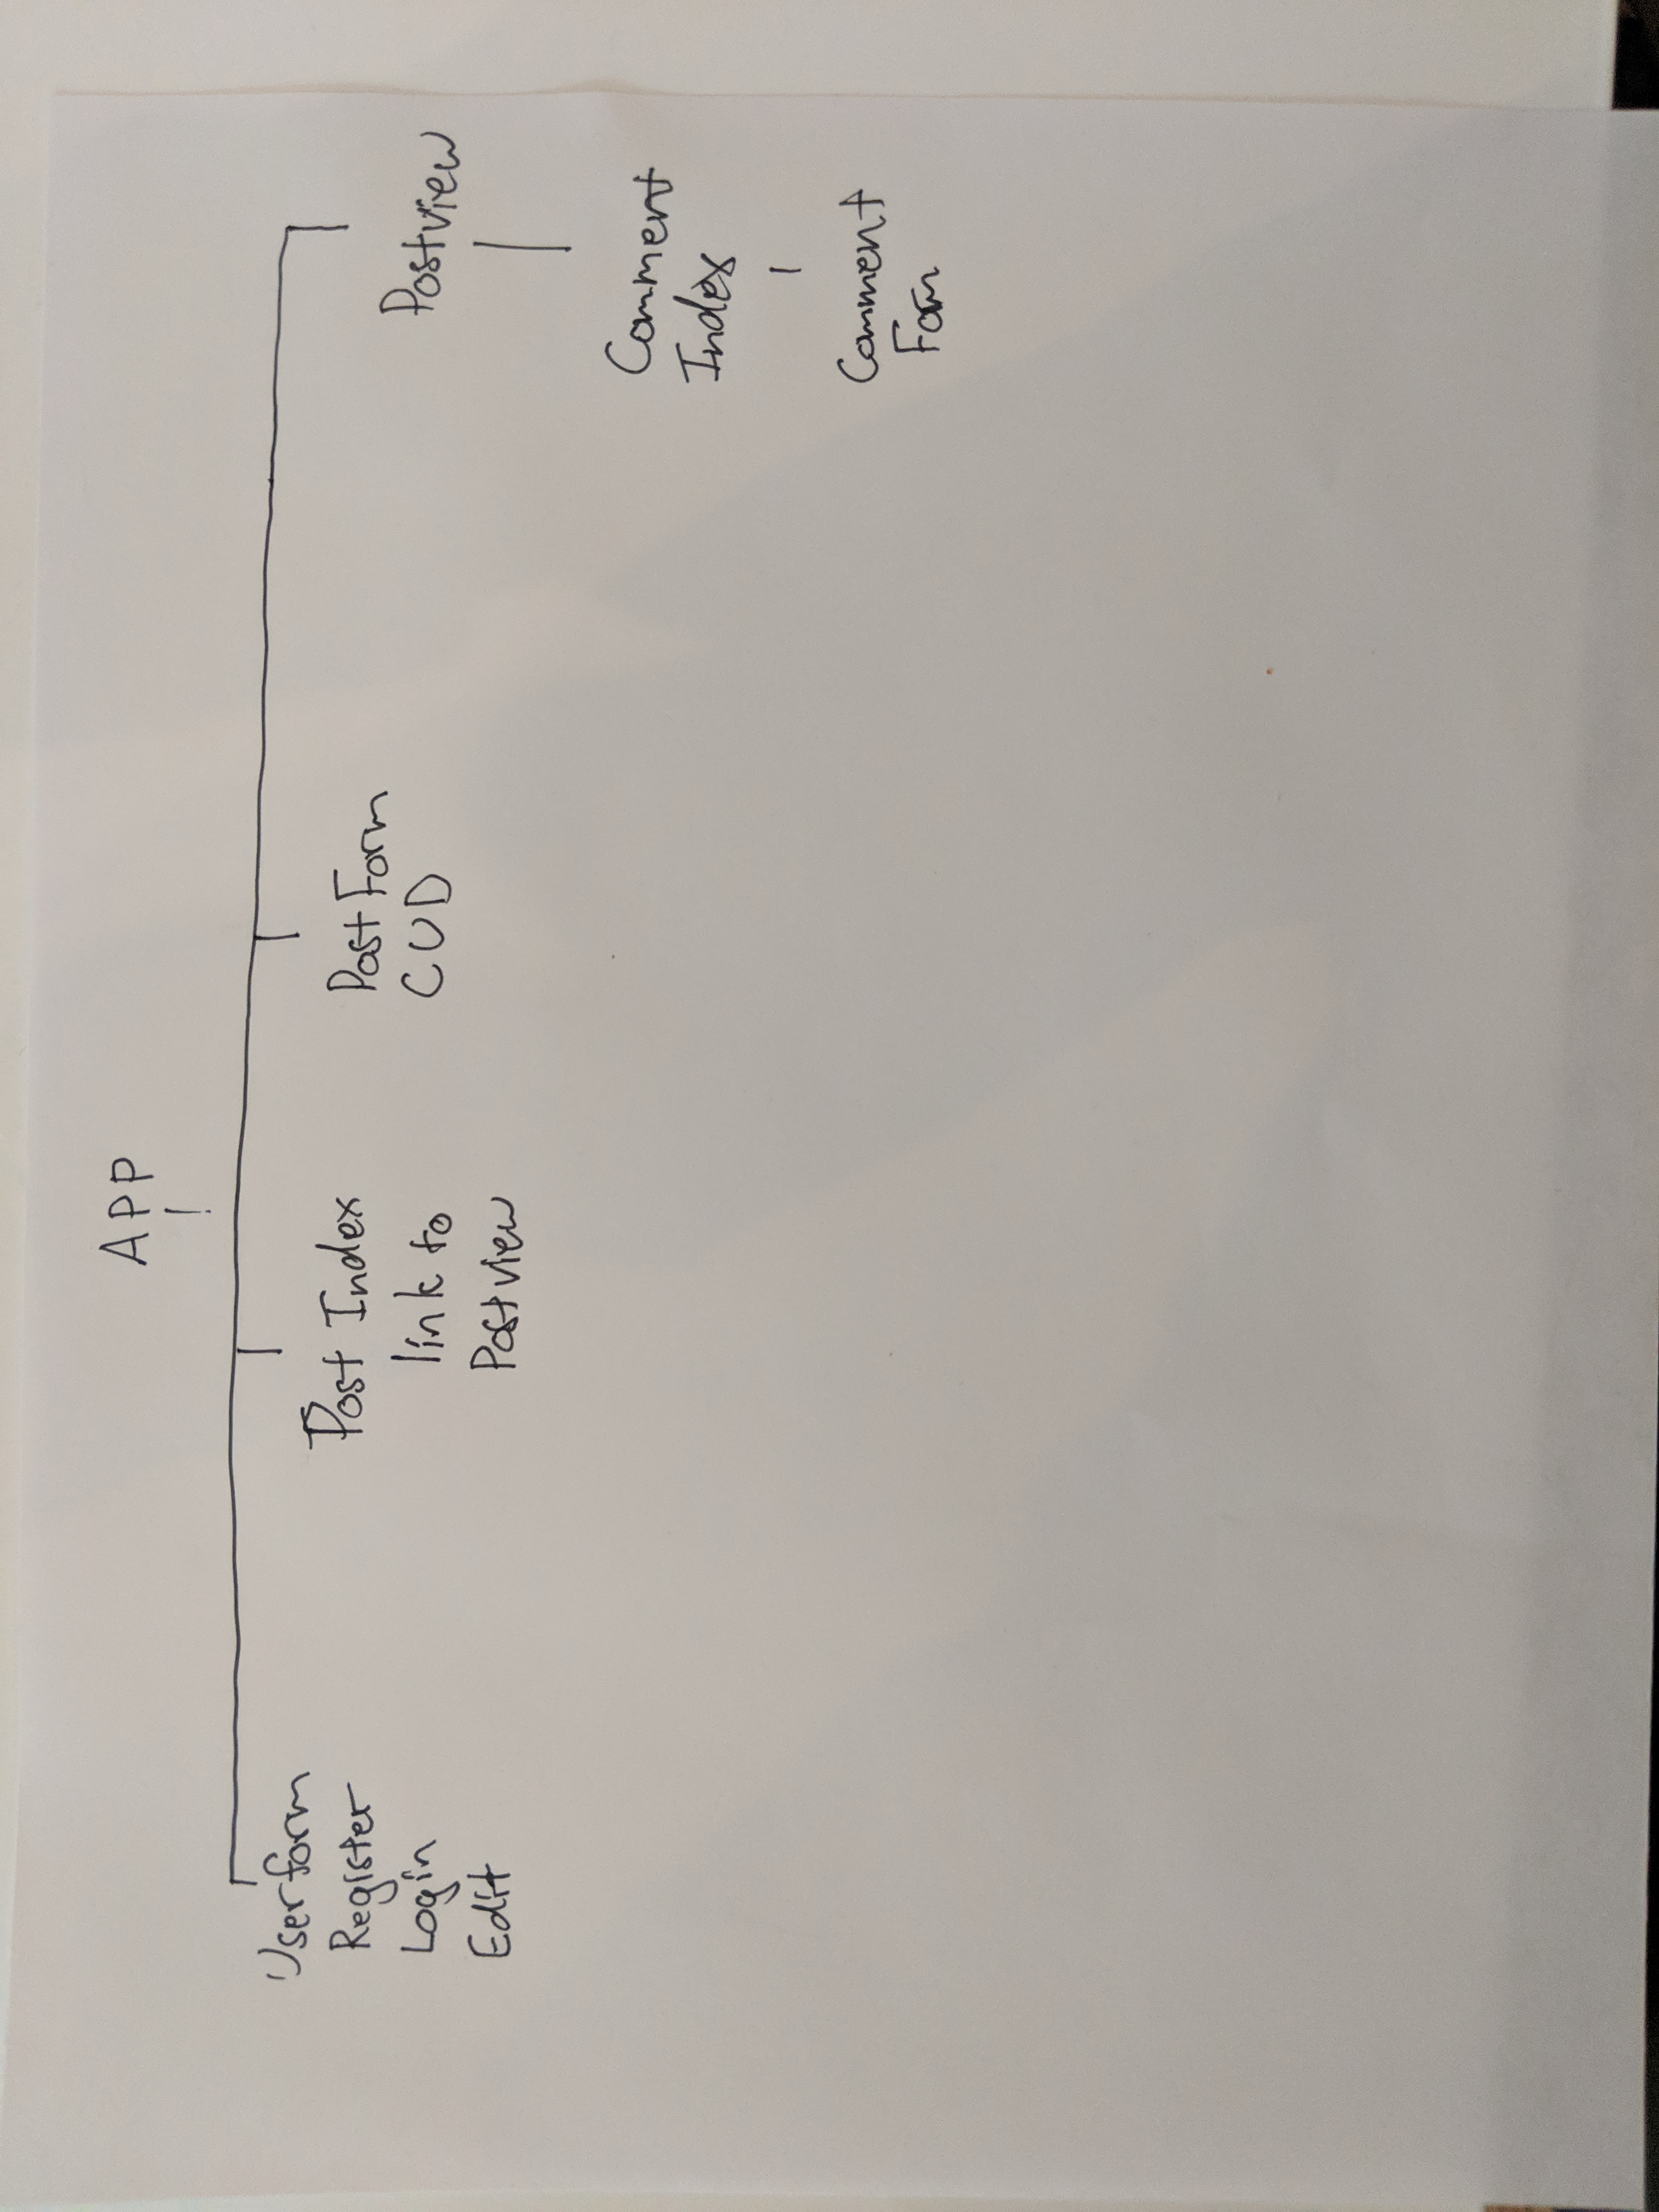 APP
Userform
Register
Login
Edit
Post Index
link to
Postview
Post Form
CUD
Postview
Comment
Index
Comment
Form